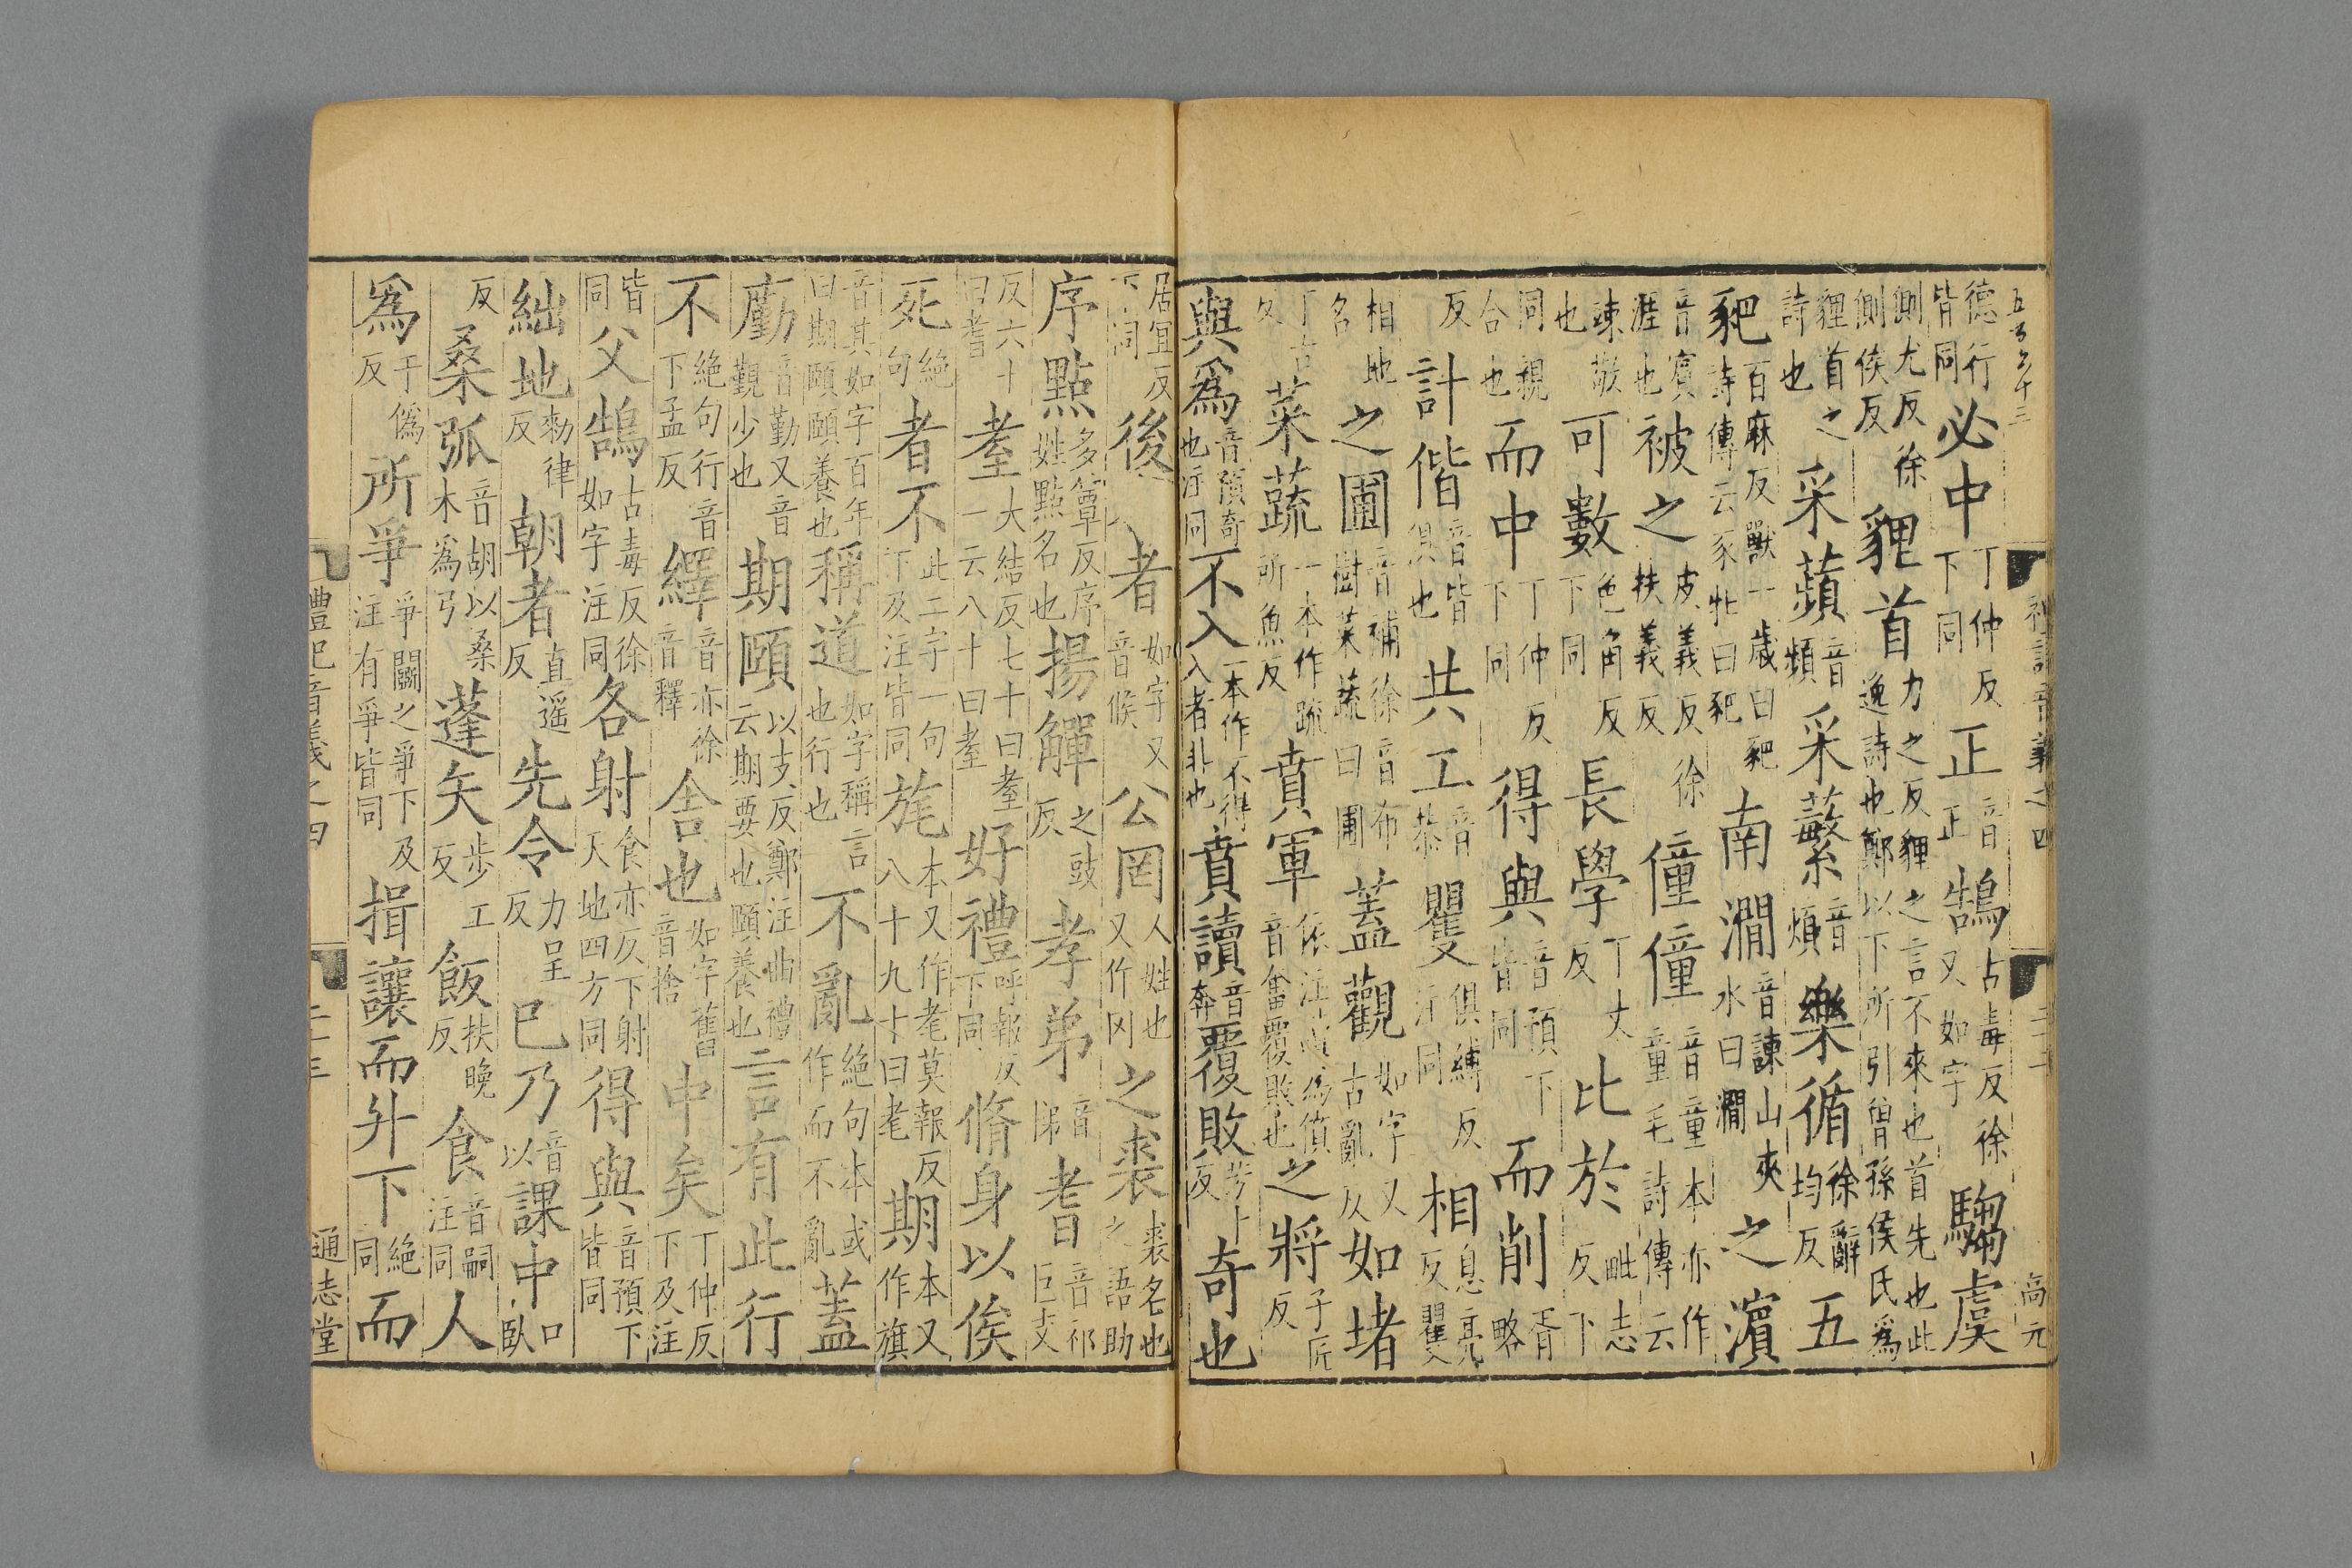 德行皆同必中丁仲反下同正音正鵠古毒反徐又如字騶虞
側尤反徐側侯反貍首力之反貍之言不來也首先也此逸詩也鄭以下所引曾孫侯氏爲
貍首之詩也采蘋音頻采蘩音煩樂循徐辭均反五
豝百麻反獸一歲曰豝詩傳云豕牝曰豝南澗音諫山夾水曰澗之濱
音賓涯也被之皮義反徐扶義反僮僮音童本亦作童毛詩傳云
竦敬也可數色角反下同長學丁丈反比於毗志反下
同親合也而中丁仲反下同得與音預下皆同而削胥略
反計偕音皆俱也共工音恭瞿俱縛反注同相息亮反瞿相
相地名之圃音補徐音布樹菜蔬曰圃蓋觀如字又古亂反如堵
丁古反菜蔬一本作疏所魚反賁軍依注讀爲僨音奮覆敗也之將子匠反
與爲音預奇也注同不入一本作不得入者非也賁讀音奔覆敗芳卜反奇也
居宜反下同後者如字又音候公罔人姓也又作冈之裘裘名也之語助
序點多簟反序姓點名也揚觶之豉反孝弟音悌耆音祁巨支
反六十曰耆耋大結反七十曰耋一云八十曰耋好禮呼報反下同脩身以俟
死絕句者不此二字一句下及注皆同旄本又作耄莫報反八十九十曰耄期本又作旗
音其如字百年曰期頤頤養也稱道如字稱言也行也不亂絕句本或作而不亂蓋
𠪱音勤又音覲少也期頤以支反鄭注曲禮云期要也頤養也言有此行
不絕句行音下孟反繹音亦徐音釋舍也如字舊音捨中矣丁仲反下及注
皆同父鵠古毒反徐如字注同各射食亦反下射天地四方同得與音預下皆同
絀地勑律反朝者直遥反先令力呈反巳乃音以課中口臥
反桑弧音胡以桑木爲弓蓬矢步工反飯扶晚反食音嗣注同人
爲于僞反所爭爭鬭之爭下及注有爭皆同揖讓而升下絕同而
禮記音義之四
通志堂